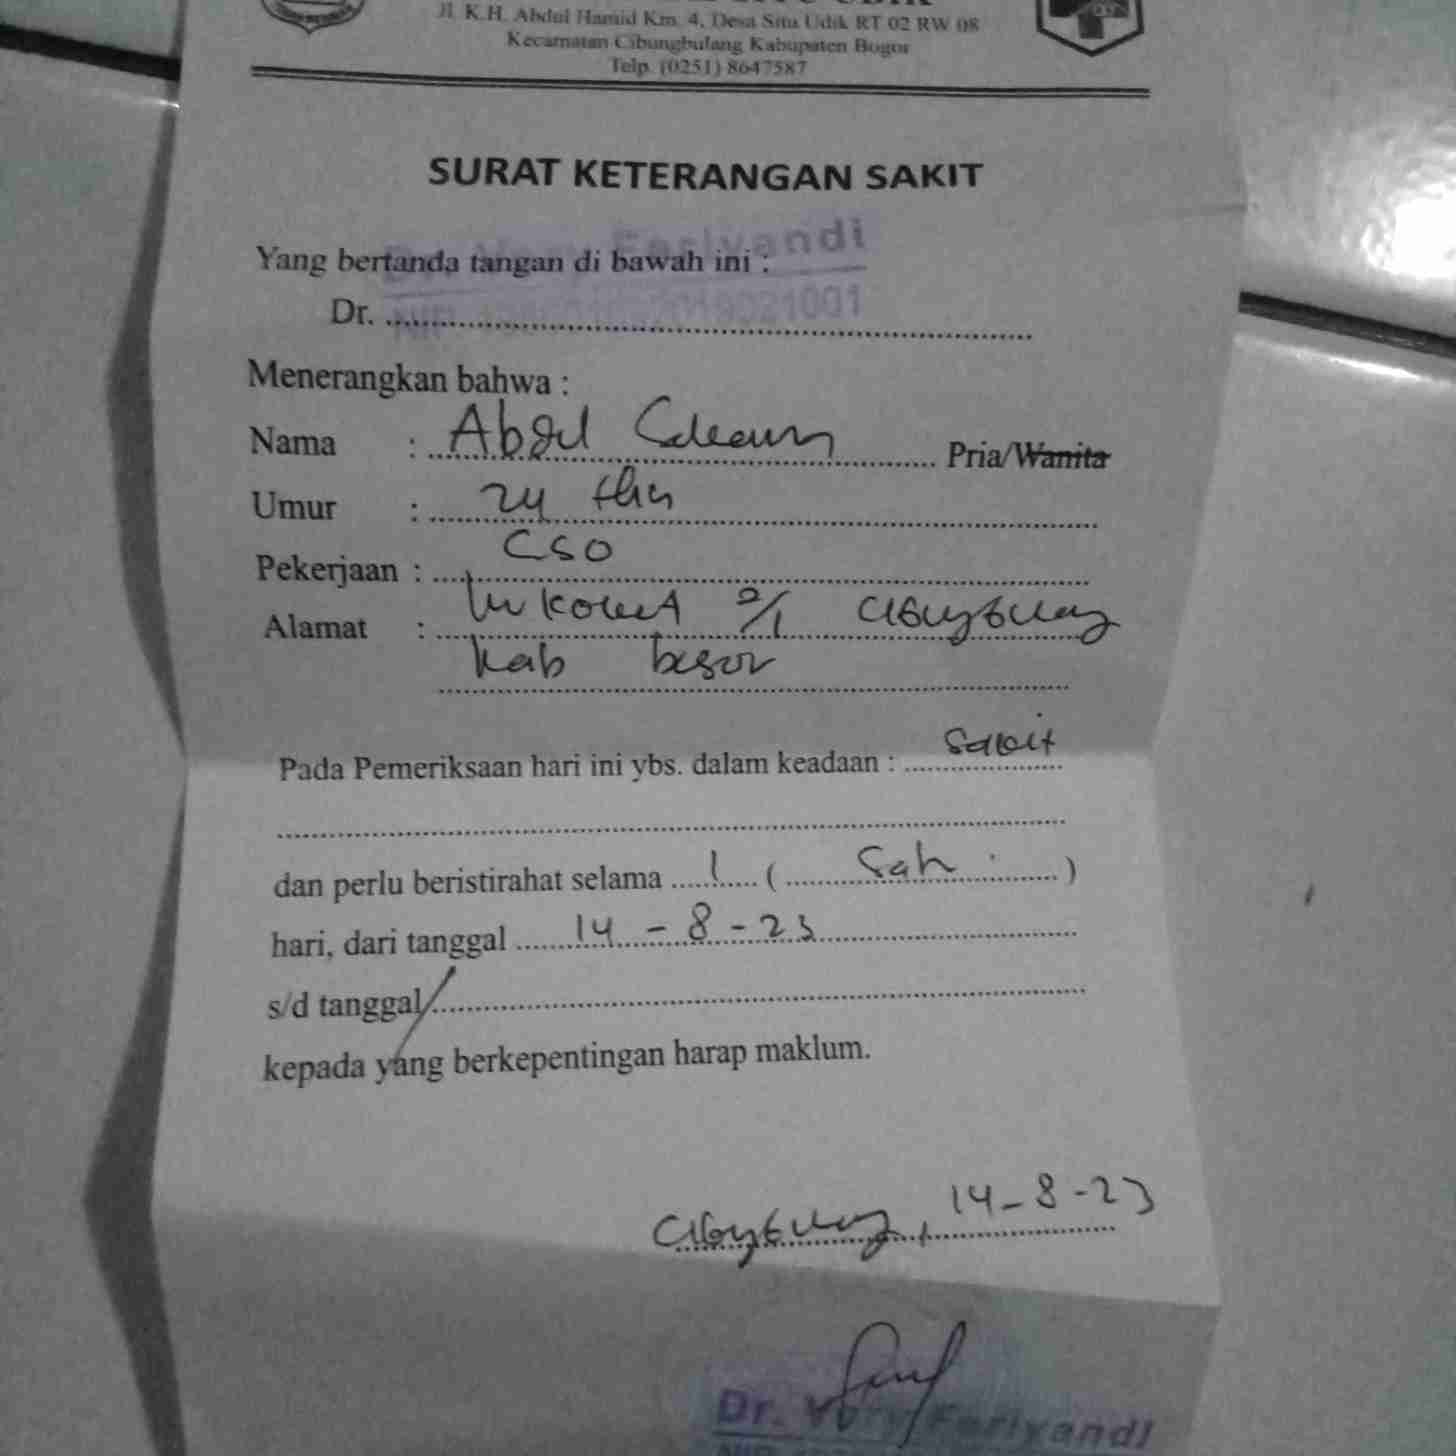 Jl. K.H. Abdul Hamid Km. 4, Desa Situ Udik RT 02 RW 08
Kecamatan Cibungbulang Kabupaten Bogor
Telp. (0251) 8647587
SURAT KETERANGAN SAKIT
Yang bertanda tangan di bawah ini :
Dr.
Menerangkan bahwa :
Nama : Abdul Pria/Wanita
Umur : 24 thn
Pekerjaan : CSO
Alamat : 2/1 Cibungbulang
Kab bogor
Pada Pemeriksaan hari ini ybs. dalam keadaan : Sakit
dan perlu beristirahat selama 1 ( Satu )
hari, dari tanggal 14 - 8 - 23
s/d tanggal
kepada yang berkepentingan harap maklum.
Cibungbulang, 14 - 8 - 23
Dr. Feriyandi